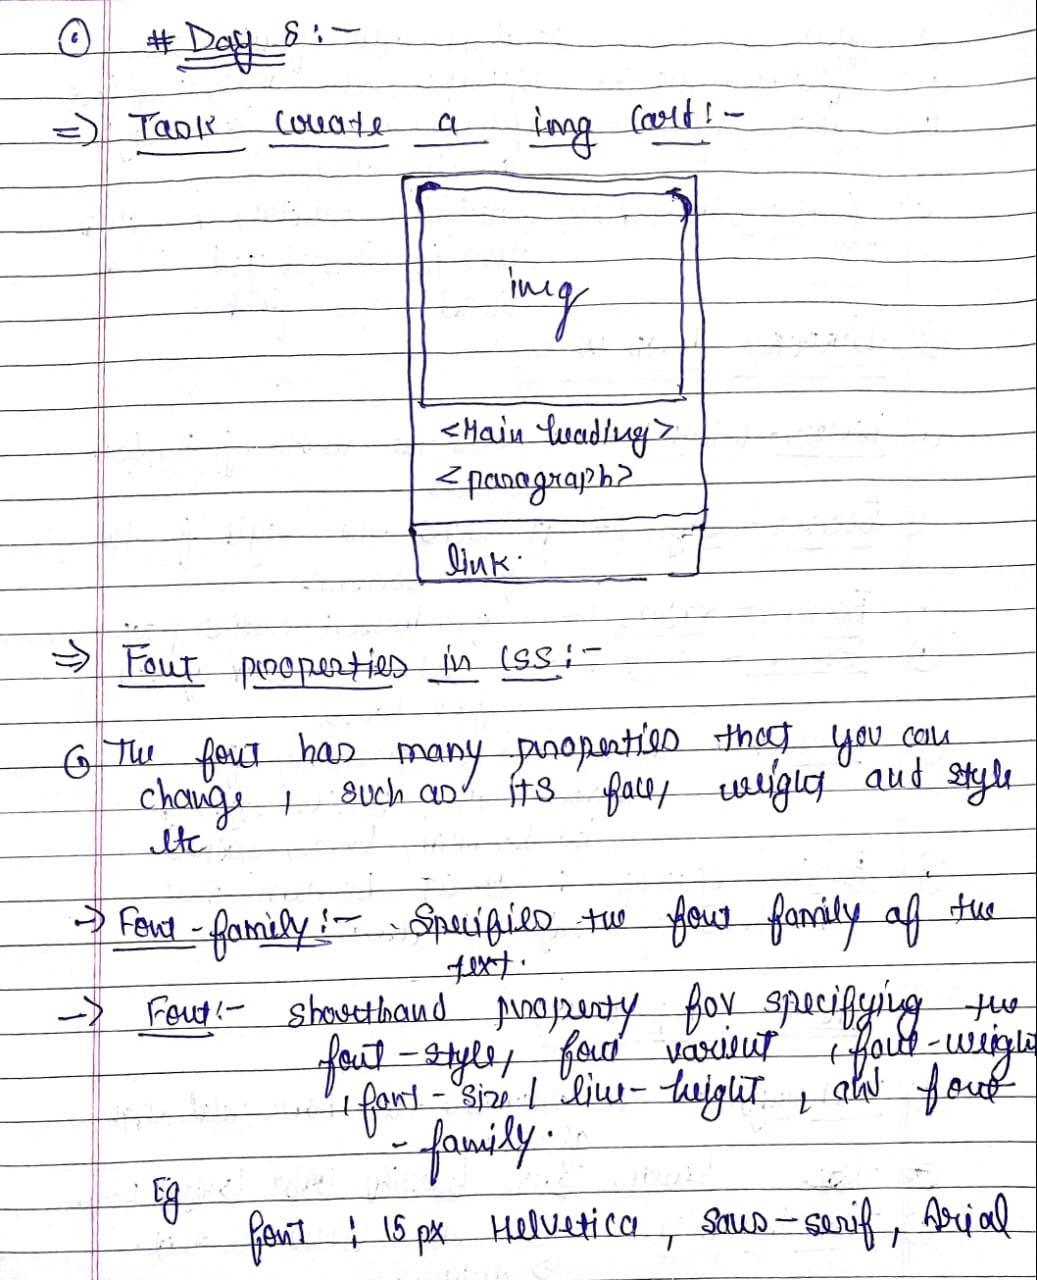 # Day 8 :-
=> Task create a img Card :-
img
<Main heading>
<paragraph>
link.
=> Font properties in CSS :-
The font has many properties that you can
change, such as its face, weight and style
etc
-> Font-family :- Specifies the font family of the
text.
-> Font :- shorthand property for specifying the
font-style, font varient, font-weight
, font-size / line-height, and font
- family.
Eg
font : 15 px Helvetica, sans-serif, Arial